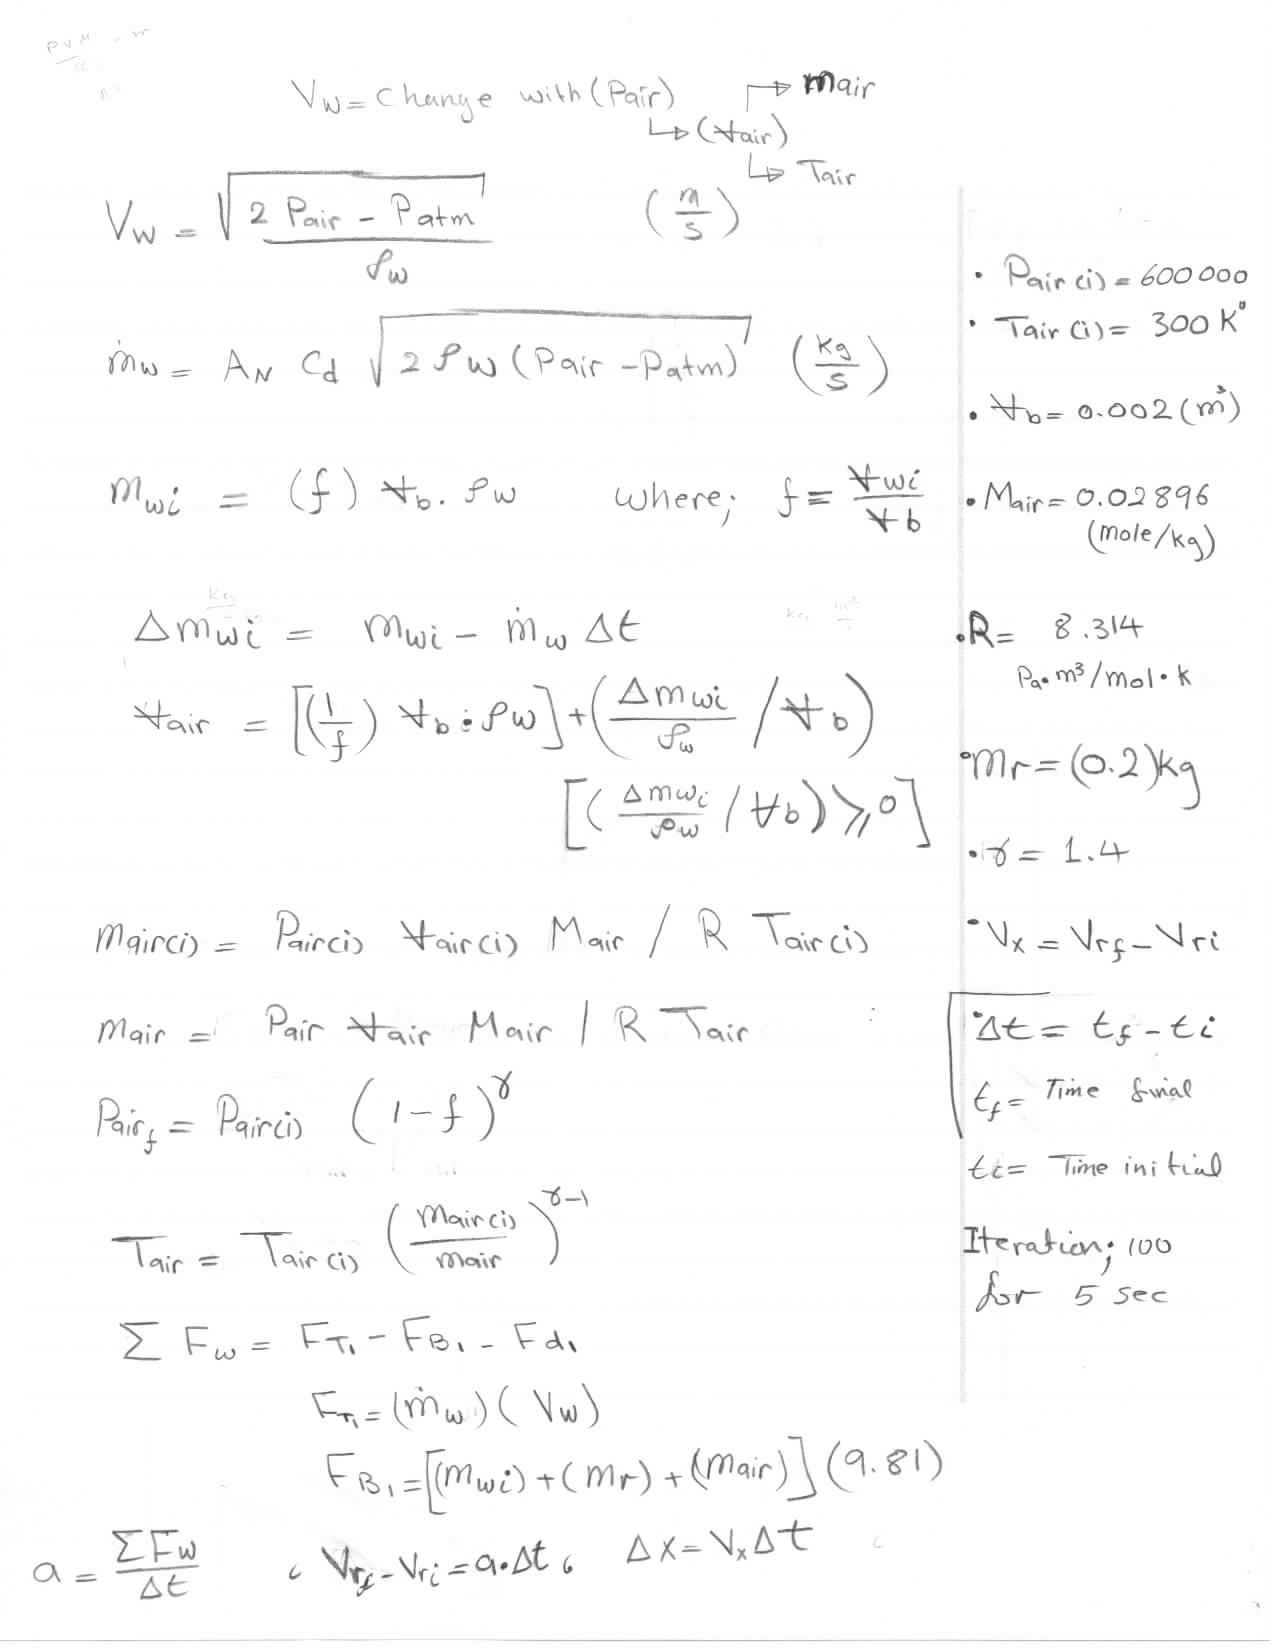 V_w = Change with (Pair) → mair
↳ (Vair)
↳ Tair
V_w = √(2 Pair - Patm / ρw) (m/s)
ṁw = A_N Cd √(2 ρw (Pair - Patm)) (kg/s)
m_wi = (f) V_b · ρw where; f = V_wi / V_b
Δm_wi = m_wi - ṁw Δt
Vair = [(1/f) V_b · ρw] + (Δm_wi/ρw / V_b)
[(Δm_wi/ρw / V_b) ⩾ 0]
mair(i) = Pair(i) Vair(i) Mair / R Tair(i)
mair = Pair Vair Mair / R Tair
Pair_f = Pair(i) (1 - f)^γ
Tair = Tair(i) (mair(i) / mair)^(γ-1)
Σ F_w = F_T1 - F_B1 - F_d1
F_T1 = (ṁw) (V_w)
F_B1 = [(m_wi) + (m_r) + (mair)] (9.81)
a = ΣF_w / Δt , V_rf - V_ri = a · Δt , Δx = V_x Δt
• Pair(i) = 600 000
• Tair(i) = 300 K°
• V_b = 0.002 (m³)
• Mair = 0.02896
(mole/kg)
• R = 8.314
Pa·m³/mol·k
• m_r = (0.2)kg
• γ = 1.4
• V_x = V_rf - V_ri
• Δt = t_f - t_i
t_f = Time final
t_i = Time initial
Iteration; 100
for 5 sec